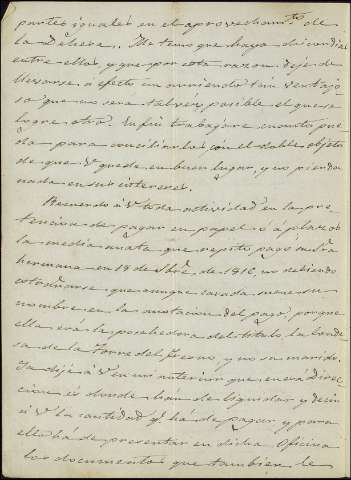 partes iguales en el aprovechamto. de
la Dehesa.. Me temo que haya discordia
entre ellos y que por esta razon deje de
llevarse á efecto un arriendo tan ventajo
sa que no sera talvéz posible el que se
logre otro. En fin trabajare cuanto pue
da para conciliarlos con el doble objeto
de que V quede en buen lugar, y no pierda
nada en sus intereses.
Recuerdo á V toda actividad en la pre
tencion de pagar en papel ó á plazos
la media anata que repito, pagó nuestra
hermana en 18 de Sbre. de 1816, no debiendo
estrañarse que aunque casada suene su
nombre en la anotacion del pago porque
ella era la poseedora del titulo, la Conde
sa de la Torre del Fresno, y no su marido.
Ya dije á V en mi anterior que en esa Direc
cion es donde han de liquidar y decir
á V la cantidad q. há de pagar y para
ello há de presentar en dicha Oficina
los documentos que tambien le